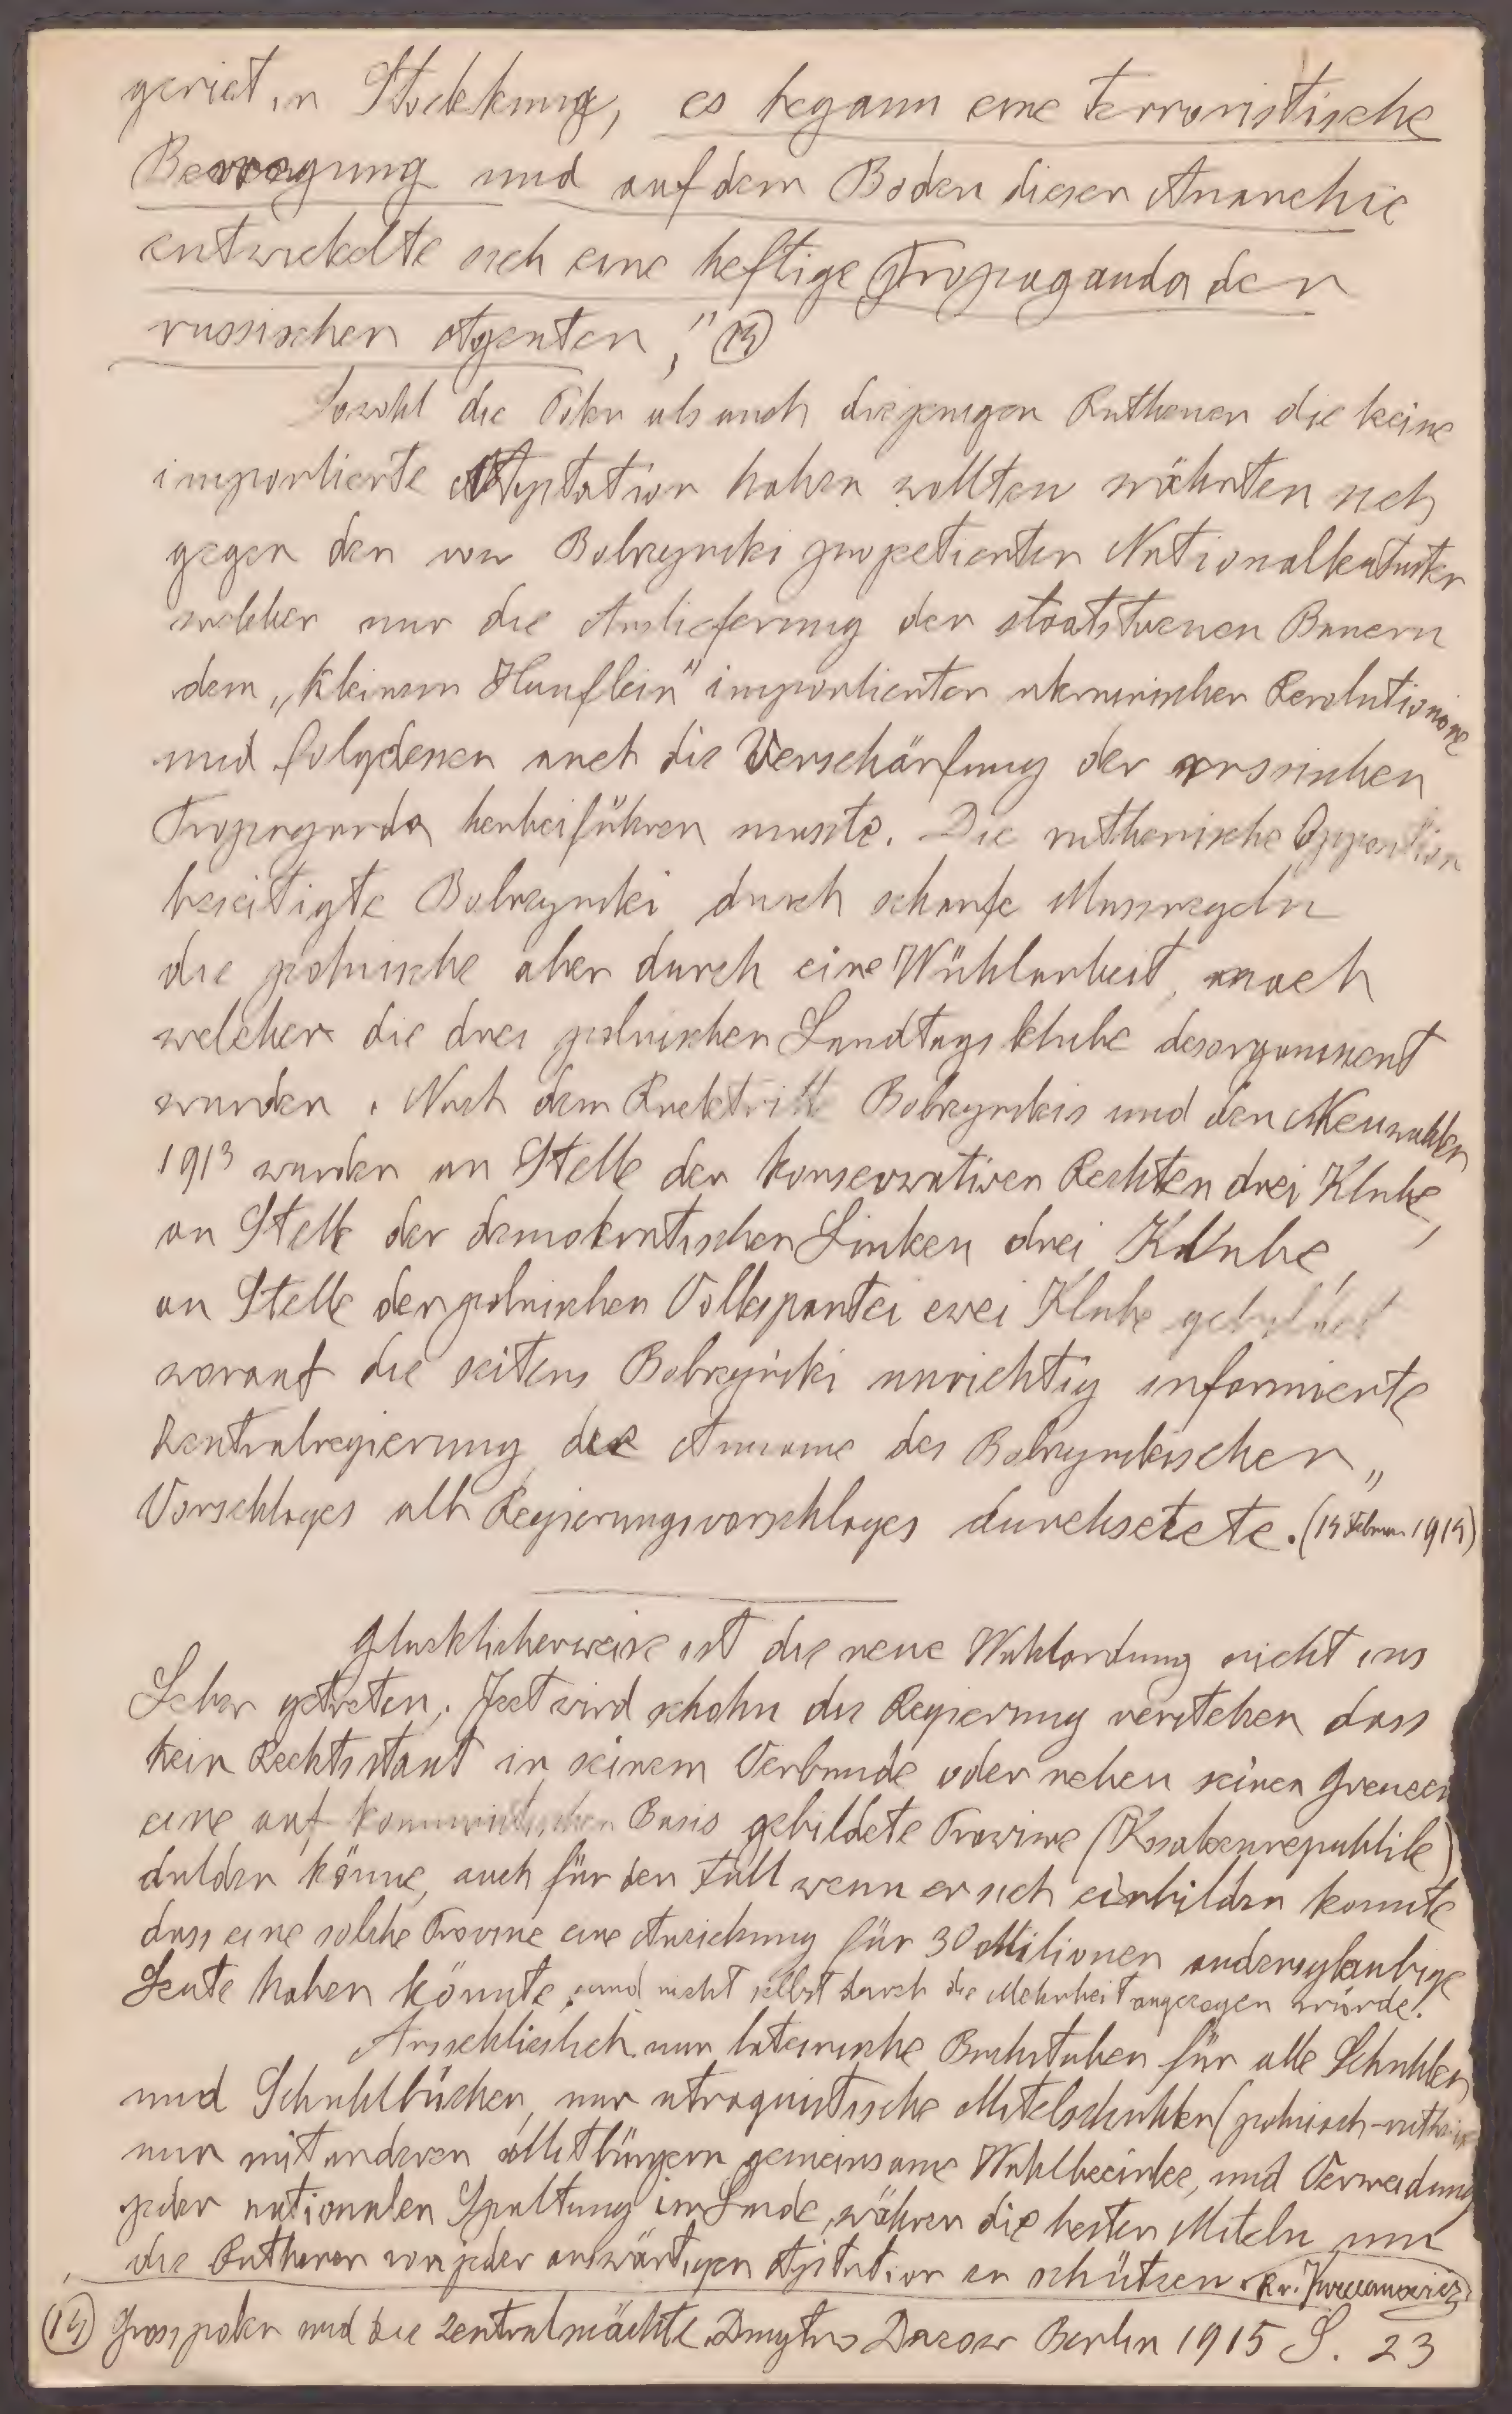 geriet in Stockkung, es begann eine terroristische
Bewegung und auf dem Boden dieser Anarchie
entwickelte sich eine heftige Propaganda der
russischen Agenten," (14)
Sowohl die Polen als auch diejenigen Ruthenen die keine
importierte Agitation haben wollten währten sich
gegen den von Bobrzynski projetierten Nationalkataster
welcher nur die Auslieferung der staatstreuen Bauern
dem „kleinen Hauflein" importierter ukrainischer Revolutionäre
und folgdessen auch die Verschärfung der russischen
Propaganda herbeiführen musste. Die ruthenische Opposition
beseitigte Bobrzynski durch scharfe Massregeln
die polnische aber durch eine Wühlarbeit, nach
welcher die drei polnischen Landtagsklube desorganisiert
wurden. Nach dem Rucktritte Bobrzynskis und den Neuwahlen
1913 wurden an Stelle der konservativen Rechten drei Klube,
an Stelle der demokratischen Linken drei Klube,
an Stelle der polnischen Volkspartei zwei Klube gebildet
worauf die seitens Bobrzyński unrichtig informierte
Zentralregierung die Anname des Bobrzynskischen
Vorschlages als Regierungsvorschlages durchsetzte. (14 Februar 1914)
Glucklicherweise ist die neue Wahlordnung nicht ins
Leben getreten. Jezt wird schohn die Regierung verstehen dass
kein Rechtsstaat in seinem Verbande oder neben seinen Grenzen
eine auf kommunistischen Basis gebildete Provinz (Kosakenrepublik)
dulden könne, auch für den Fall wenn er sich einbilden konnte
dass eine solche Provinz eine Anziehung für 30 Milionen andersglaubige
Leute haben könnte, und nicht selbst durch die Mehrheit angezogen würde!
Ausschlieslich nur lateinische Buchstaben für alle Schuhlen
und Schuhlbücher, nur utraquistische Mitelschuhlen (polnisch-ruthenische
nur mit anderen Mitbürgern gemeinsame Wahlbezirke, und Vermeidung
jeder nationalen Spaltung im Lande, währen die besten Miteln um
die Ruthenen von jeder auswärtigen Agitation zu schützen.
(14) Grosspolen und die Zentralmächte. Dmytro Donzow Berlin 1915 S. 23